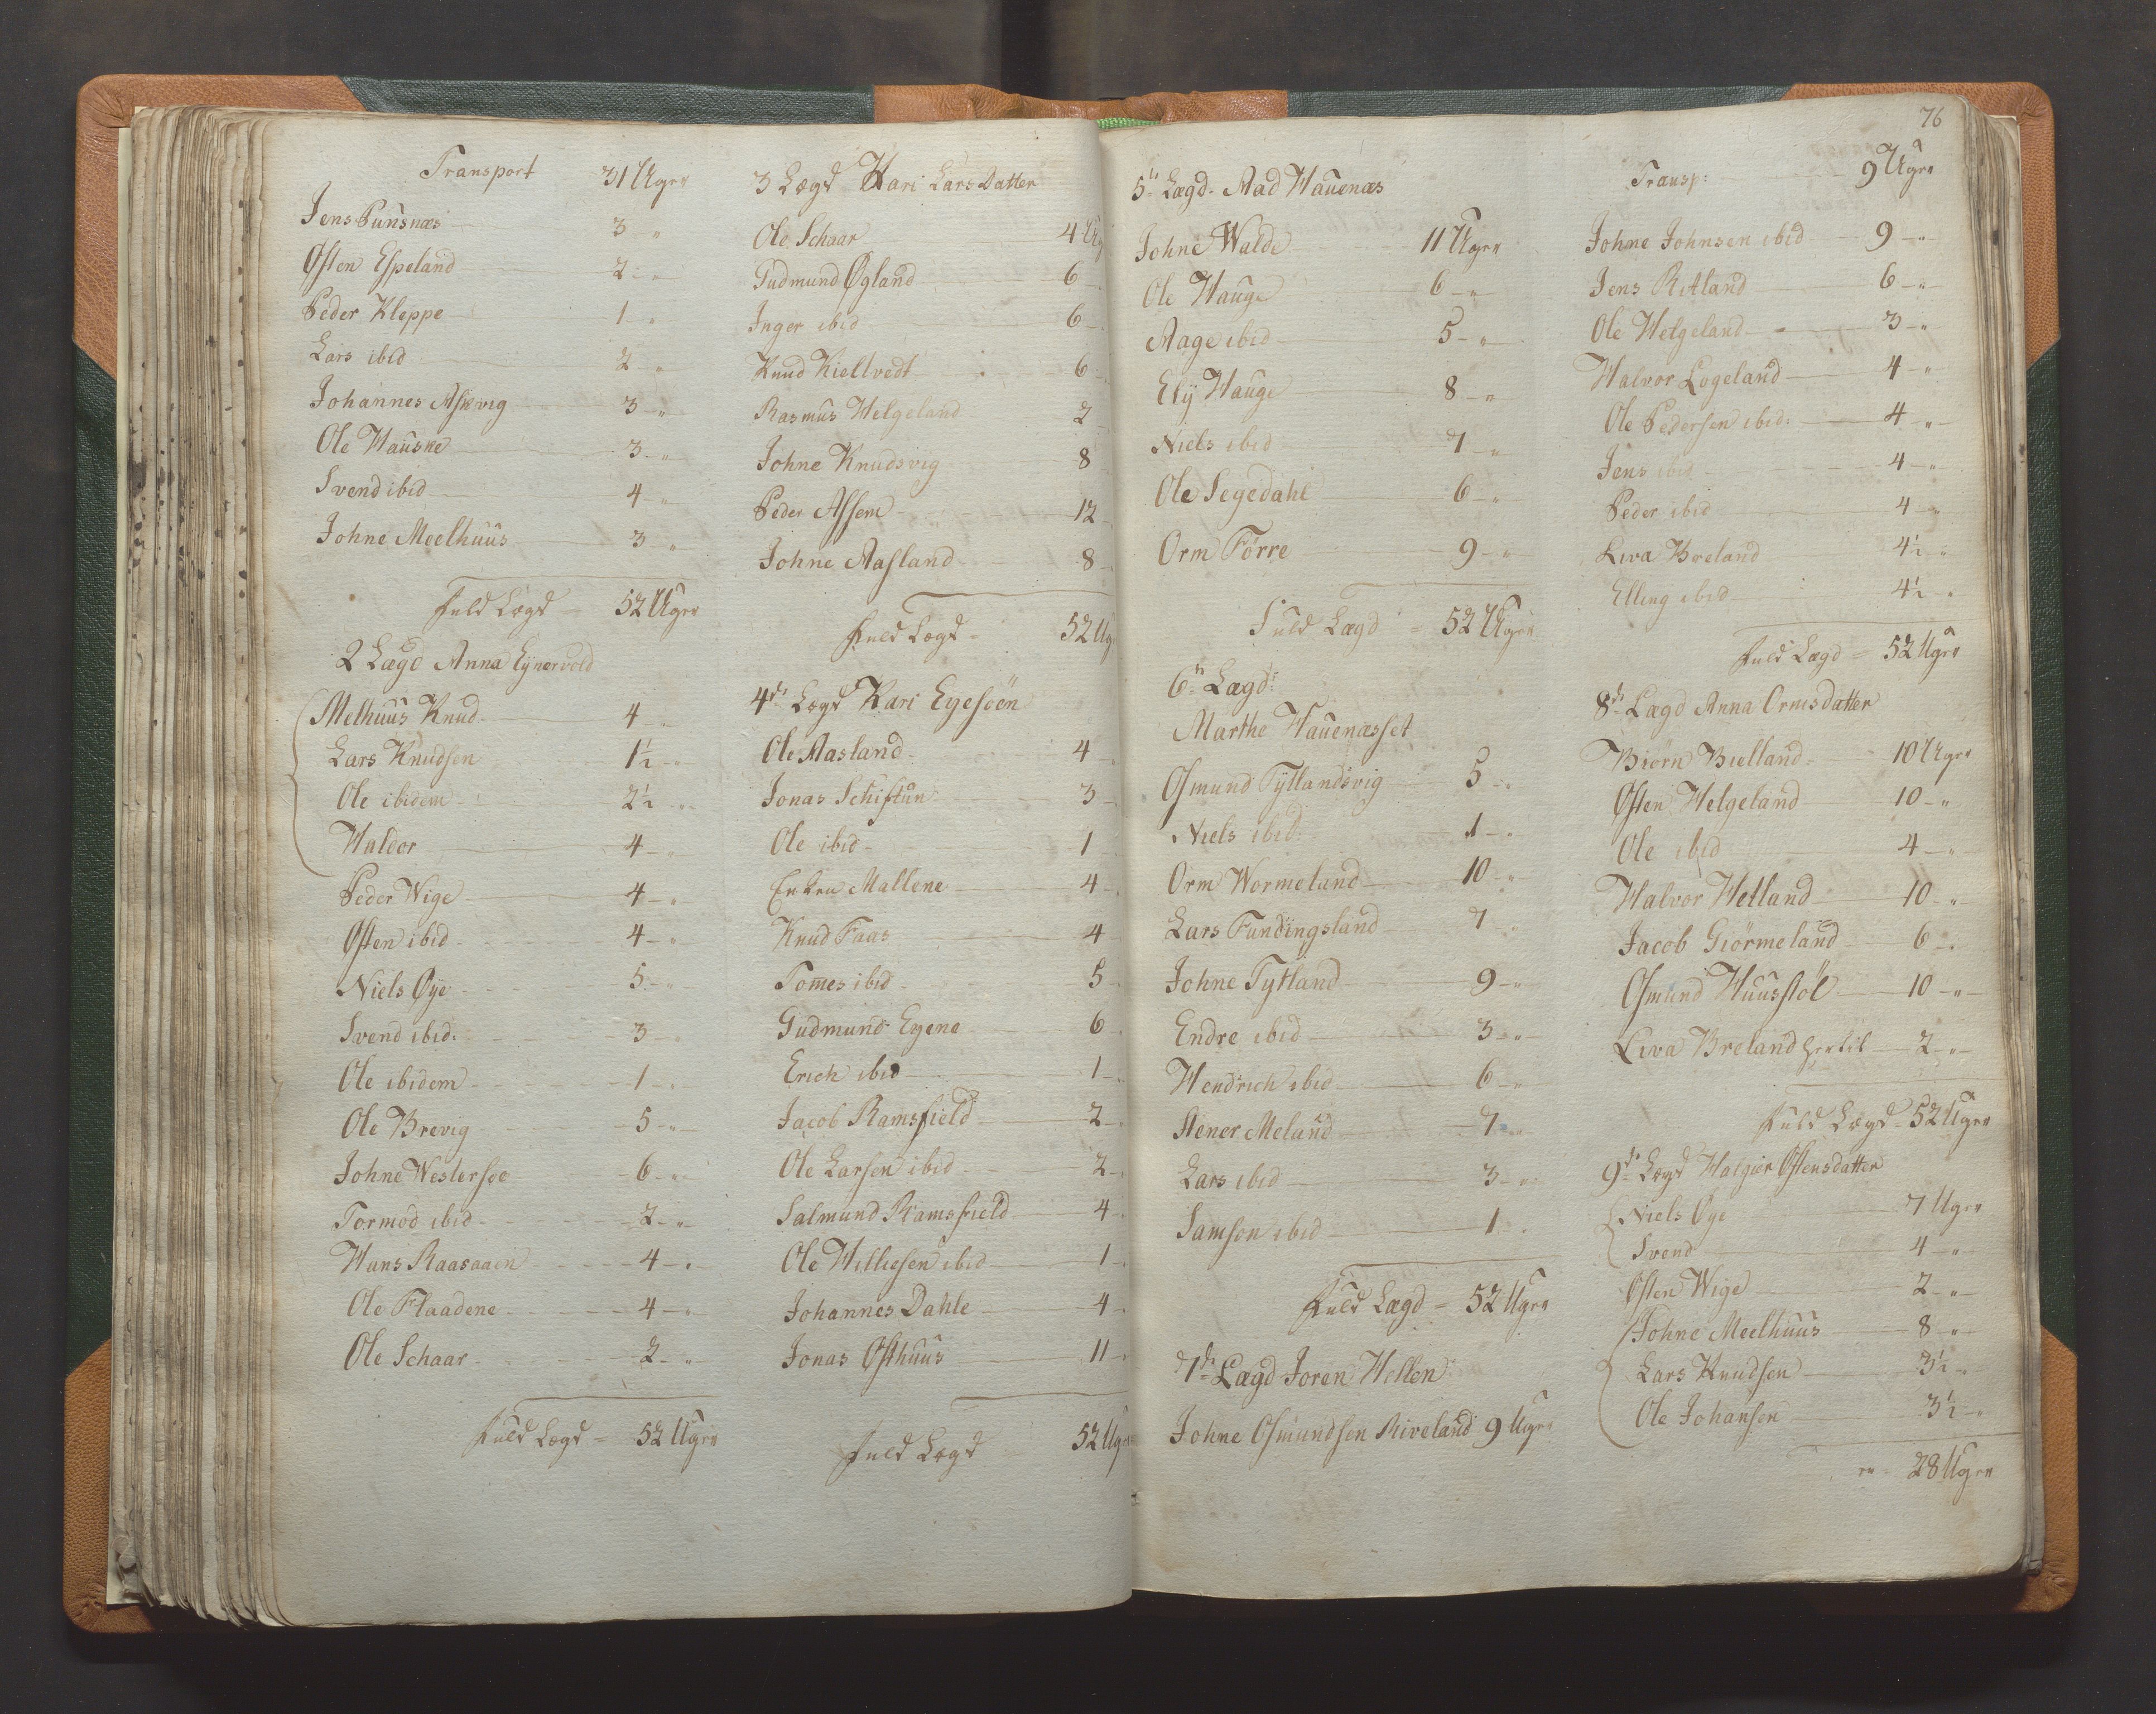 Transport 31 Uger
Jens Punsnæs 3 "
Østen Espeland 2 "
Peder Kleppe 1 "
Lars ibid 2 "
Johannes Askvig 3 "
Ole Hauske 3 "
Svend ibid 4 "
Johne Meelhuus 3 "
fuld Lægd = 52 Uger
2 Lægd Anna Eynervold
Melhuus Knud 4 "
Lars Knudsen 1½ "
Ole ibidem 2½ "
Haldor 4 "
Peder Wige 4 "
Østen ibid 4 "
Niels Øye 5 "
Svend ibid: 3 "
Ole ibidem 1 "
Ole Brevig 5 "
Johne Westersøe 6 "
Tormod ibid 2 "
Hans Raasaaen 4 "
Ole Flaadene 4 "
Ole Schaar 2 "
fuld Lægd = 52 Uger
3 Lægd Kari Lars Datter
Ole Schaar 4 Ug
Gudmund Øgland 6
Inger ibid 6
Knud Kieltvedt 6
Rasmus Helgeland 2
Johne Knudsvig 8
Peder Assem 12
Johne Aasland 8
fuld Lægd = 52 Ug
4de Lægd Kari Egesöen
Ole Aasland 4
Jonas Schiftun 3
Ole ibid 1
Enken Mallene 4
Knud Faas 4
Tom̄es ibid 5
Gudmund Eyene 6
Erich ibid 1
Jacob Ramsfield 2
Ole Larsen ibid 2
Salmund Ramsfield 4
Ole Willicsen ibid 1
Johannes Dahle 4
Jonas Østhuus 11
fuld Lægd 52 Uger
76
5te Lægd. Aad Hauenæs
Johne Walde 11 Uger
Ole Hauge 6 "
Aage ibid 5 "
Ely Hauge 8 "
Niels ibid 7 "
Ole Segedahl 6 "
Orm Förre 9 "
Fuld Lægd = 52 Uger
6te Lægd:
Marthe Hauenæsset
Osmund Tytlandsvig 5 "
Niels ibid: 1 "
Orm Wormeland 10 "
Lars Fundingsland 7 "
Johne Tytland 9 "
Endre ibid 3 "
Hendrich ibid 6 "
Stener Meland 7 "
Lars ibid 3 "
Samson ibid 1 "
Fuld Lægd = 52 Uger
7de Lægd Joren Hellen
Johne Osmundsen Riveland 9 Uger
Transp: 9 Uger
Johne Johnsen ibid 9 "
Jens Ritland 6 "
Ole Helgeland 3 "
Halvor Logeland 4 "
Ole Pedersen ibid: 4 "
Jens ibid 4 "
Peder ibid 4 "
Liva Breland 4½ "
Elling ibid 4½ "
fuld Lægd = 52 Uger
8de Lægd Anna Ormsdatter
Biörn Bielland 10 Uger
Østen Helgeland 10 "
Ole ibid 4 "
Halvor Hetland 10 "
Jacob Giörmeland 6 "
Osmund Huusstöl 10 "
Liva Breland hertil 2 "
Fuld Lægd = 52 Uger
9de Lægd Halgier Østensdatter
Niels Øye 7 Uger
Svend 4 "
Østen Wige 2 "
Johne Meelhuus 8 "
Lars Knudsen 3½ "
Ole Johansen 3½ "
er 28 Uger